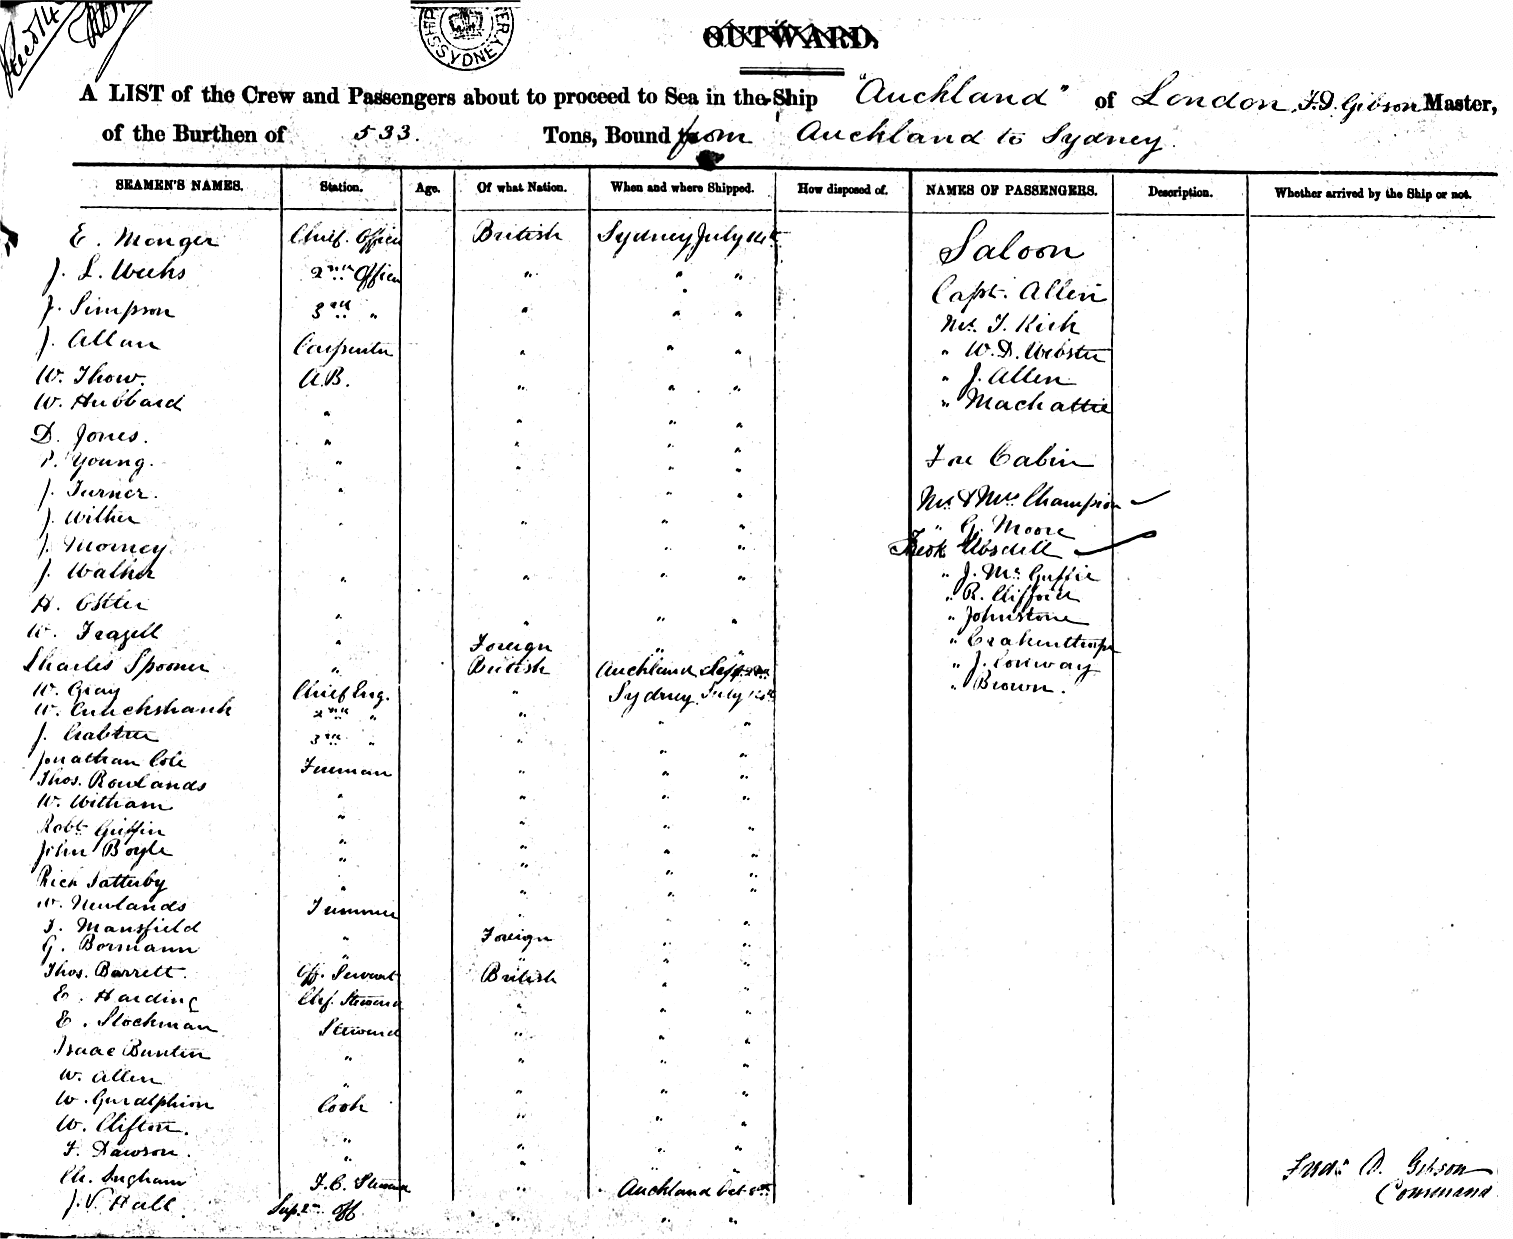 SHIPP ERY SYDNEY
OUTWARD.
A LIST of the Crew and Passengers about to proceed to Sea in the Ship "Auckland" of London, F.D. Gibson Master,
of the Burthen of 533. Tons, Bound from Auckland to Sydney.
SEAMEN'S NAMES. Station. Age. Of what Nation. When and where Shipped. How disposed of. NAMES OF PASSENGERS. Description. Whether arrived by the Ship or not.
E. Monger Chief. Officer British Sydney July 14th
Saloon
J. L. Weeks 2nd Officer " " "
Capt. Allen
J. Simpson 3rd " " " "
Mr. T. Kirk
J. Allan Carpenter " " "
" W. D. Webster
W. Thow. A.B. " " "
" J. Allen
W. Hubbard " " " "
" Machattie
D. Jones. " " " "
P. Young. " " " "
Fore Cabin
J. Turner. " " " "
Mr. & Mrs. Champion
J. Wither " " " "
" G. Moore
J. Morney " "
J. Walker " " " "
" J. McGuffie
H. Ostler " " " "
" R. Clifford
" Johnstone
W. Frazell " Foreign " "
Charles Spooner " British Auckland
" J. Conway
W. Gray Chief Eng. " Sydney July 14th
" Brown.
W. Cruickshank 2nd " " " "
J. Crabtree 3rd " " " "
Jonathan Cole Fireman " " "
Thos. Rowlands " " " "
W. Witham " " " "
Robt. Griffin " " " "
John Boyle " " " "
Rich Satterby " " " "
W. Newlands Trimmer " " "
F. Mansfield " Foreign " "
G. Bormann " " " "
Thos. Barrett. Off. Servant British " "
E. Harding Chf. Steward " " "
E. Stockman Steward " " "
Isaac Buntin " " " "
W. Allen " " " "
W. Cook " " "
W. Clifton. " " " "
F. Dawson. " " " "
Ch. Ingham F.C. Steward " Auckland Oct 8th
J. V. Hall. Sup. Off " " "
Fredk. D. Gibson
Command